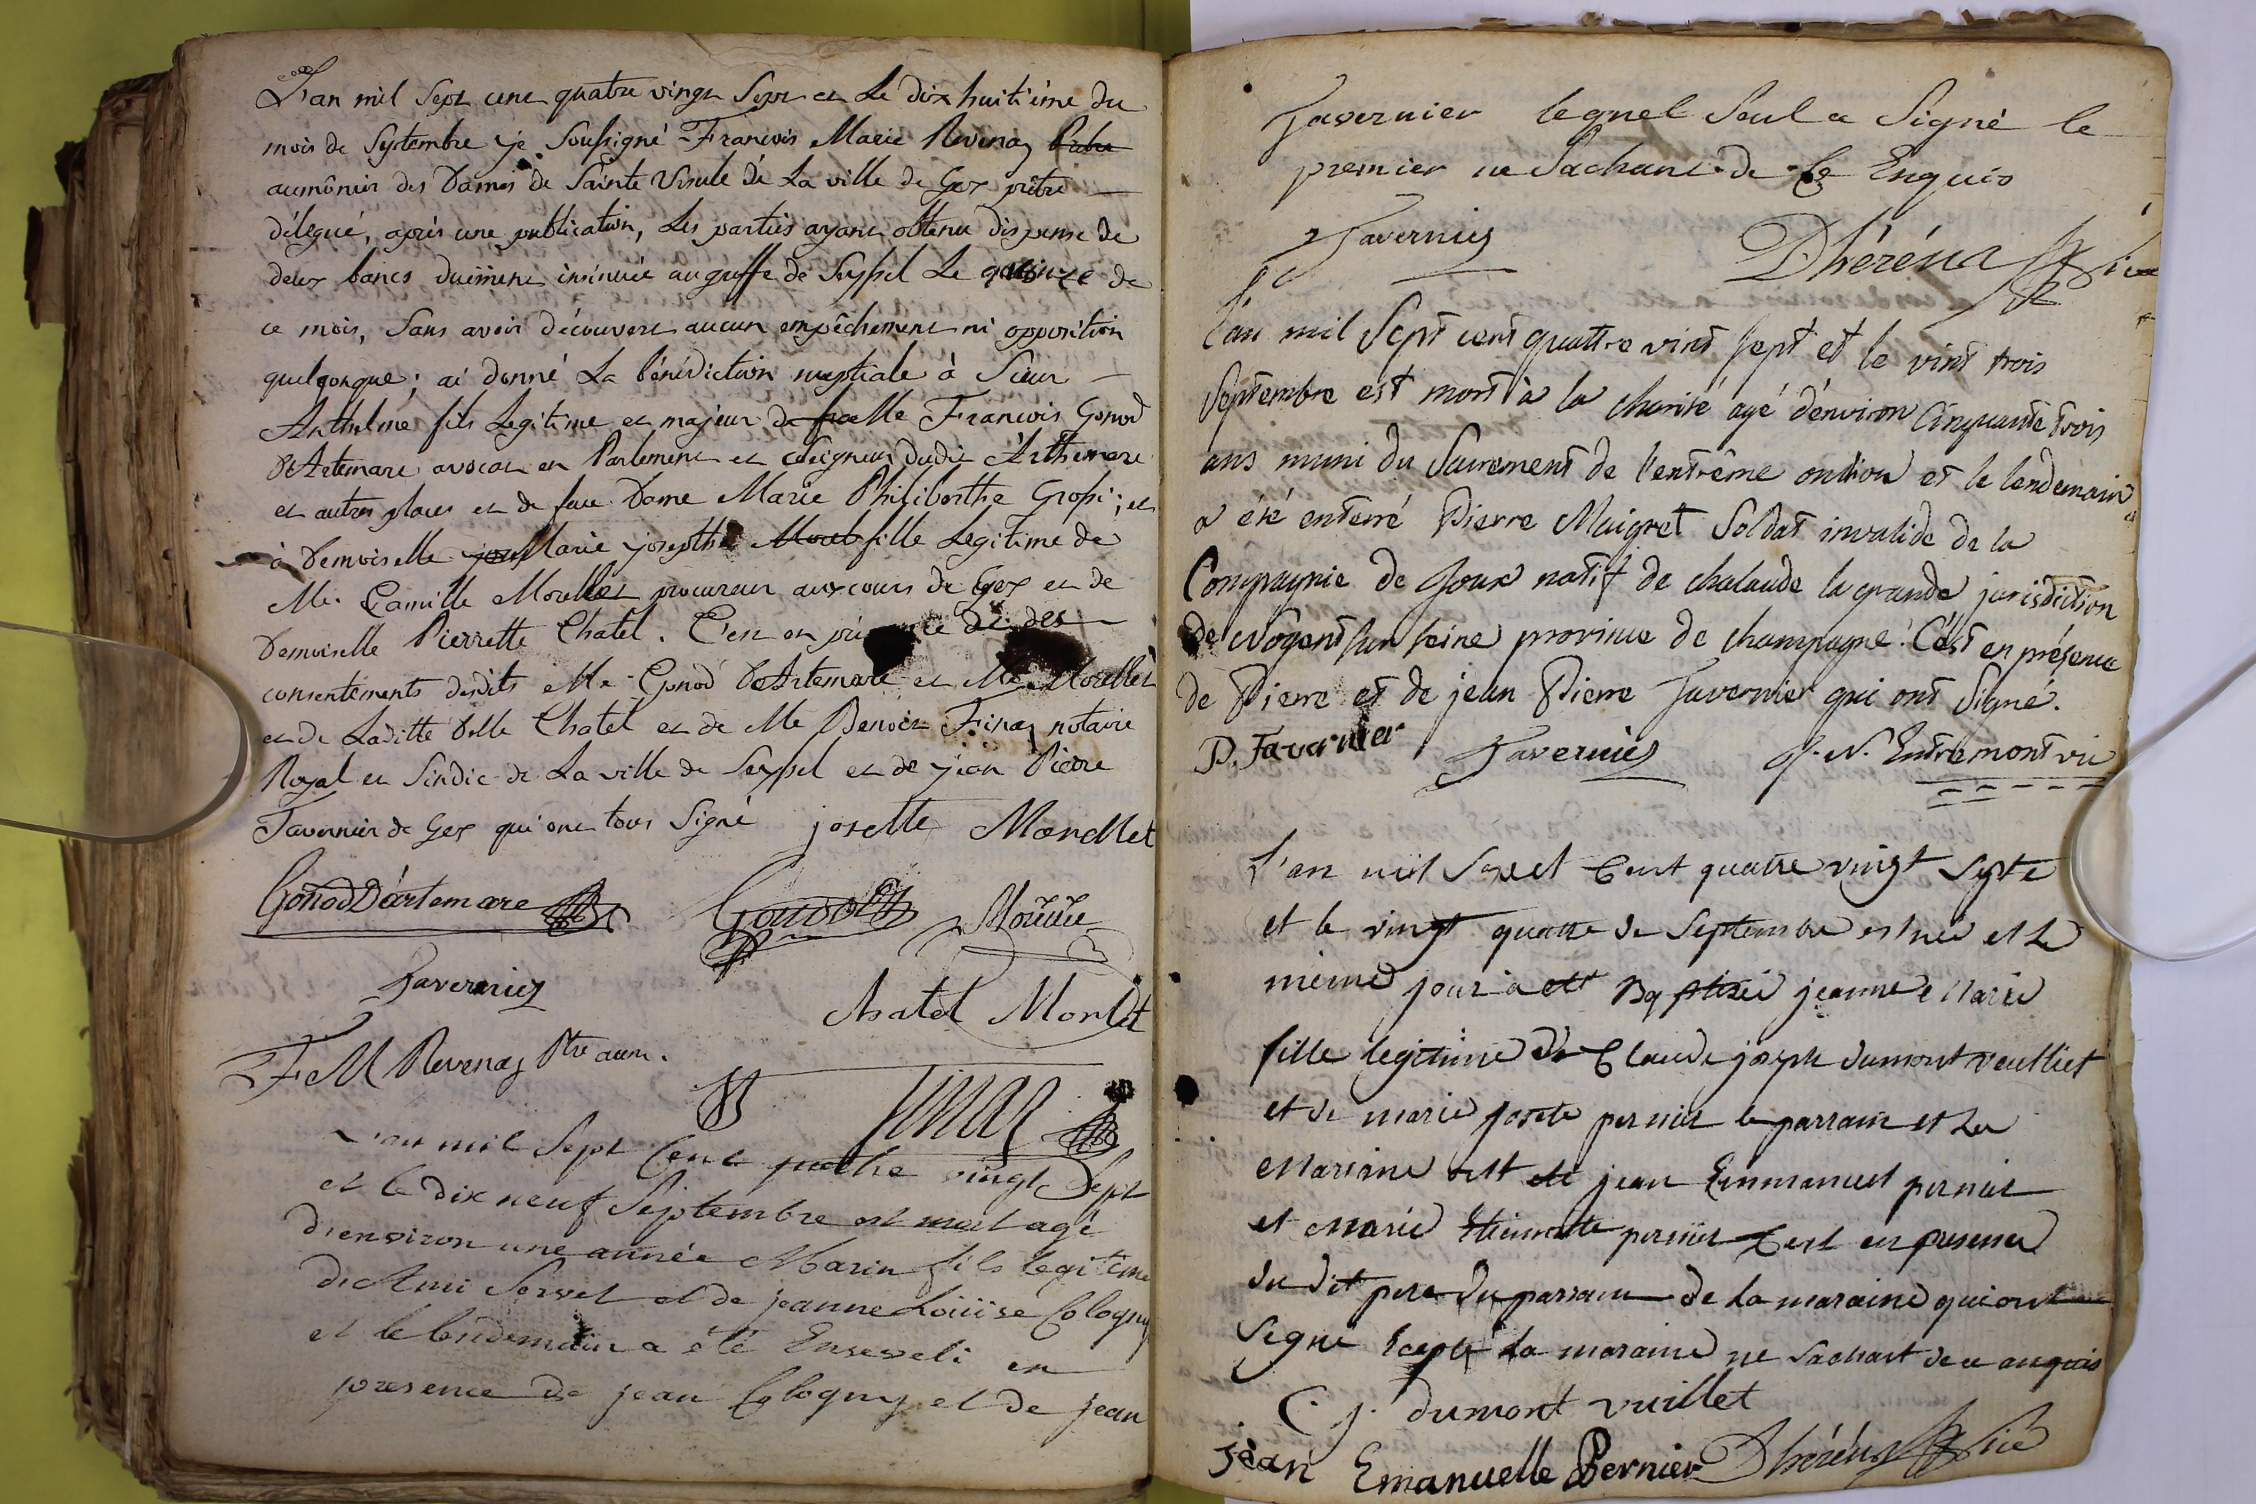 L'an mil Sept cent quatre vingt Sept et Le dix huitième du
mois de Septembre je Soussigné François Marie Revenaz
aumônier des Dames de Sainte Ursule de La ville de Gex prêtre
délégué, après une publication, Les parties ayant obtenu dispense de
deux bancs duement insinuée au greffe de Seyssel Le quinze de
ce mois, Sans avoir découvert aucun empêchement ni opposition
quelqonque; ai donné La bénédiction nuptiale à Sieur
Anthelme fils Legitime et majeur de Me François Gonod
D'Artemare avocat en Parlement et coseigneur dudit Arthemare
et autres places et de feue Dame Marie Philiberthe Grossi; et
à Demoiselle Marie josepthe fille Legitime de
Me. Camille Morellet procureur aux cours de Gex et de
Demoiselle Pierrette Chatel. C'est en présence de des
consentements desdits Me Gonod D'Artemare et Me Morellet
et de Laditte Delle Chatel et de Me Benoit Finaz notaire
Royal et Sindic de La ville de Seyssel et de jean Pierre
Tavernier de Gex qui ont tous Signé josette Morellet
Gonod D'artemare Gonod
Tavernier Chatel Morlet
F M Revenaz Ptre aum.
Finaz
L'an mil Sept Cent quatre vingt Sept
et le dix neuf Septembre est mort agé
d'environ une année Marin fils legitime
d'Ami Servet et de jeanne Loüise Cologny
et le lendemain a été Enseveli en
presence de jean Cologny et de jean
Tavernier lequel Seul a Signé le
premier ne Sachant de Ce Enquis
Tavernier Dhéréna Vice
l'an mil Sept cent quattre vint sept et le vint trois
Septembre est mort à la charité agé d'énviron Cinquante trois
ans muni du Sacrement de l'entrême onction et le lendemain
a été enterré Pierre Maigret Soldat invalide de la
Compagnie de Joux natif de chalaude la grande jurisdiction
de Nogent sur seine province de champagne. C'ést en présence
de Pierre et de jean Pierre Tavernier qui ont Signé.
P. Tavernier Tavernier J. N. Entremont vic
L'an mil Sept Cent quatre vingt Septe
et le vingt quatre de Septembre est née et Le
même jour a ett Baptisée jeanne Marie
fille legitime de Claude joseph dumont veulliet
et de marie josete pernier le parrain et La
Maraine ott eté jean Emmanuel pernier
et Marie Etiennette pernier Cest en presence
du dit pere du parrain de La maraine qui ont
Signé Septé La maraine ne Sachant de ce anquis
C. j. dumont vuillet
jèan Emanuelle Pernier Dhéréna vice